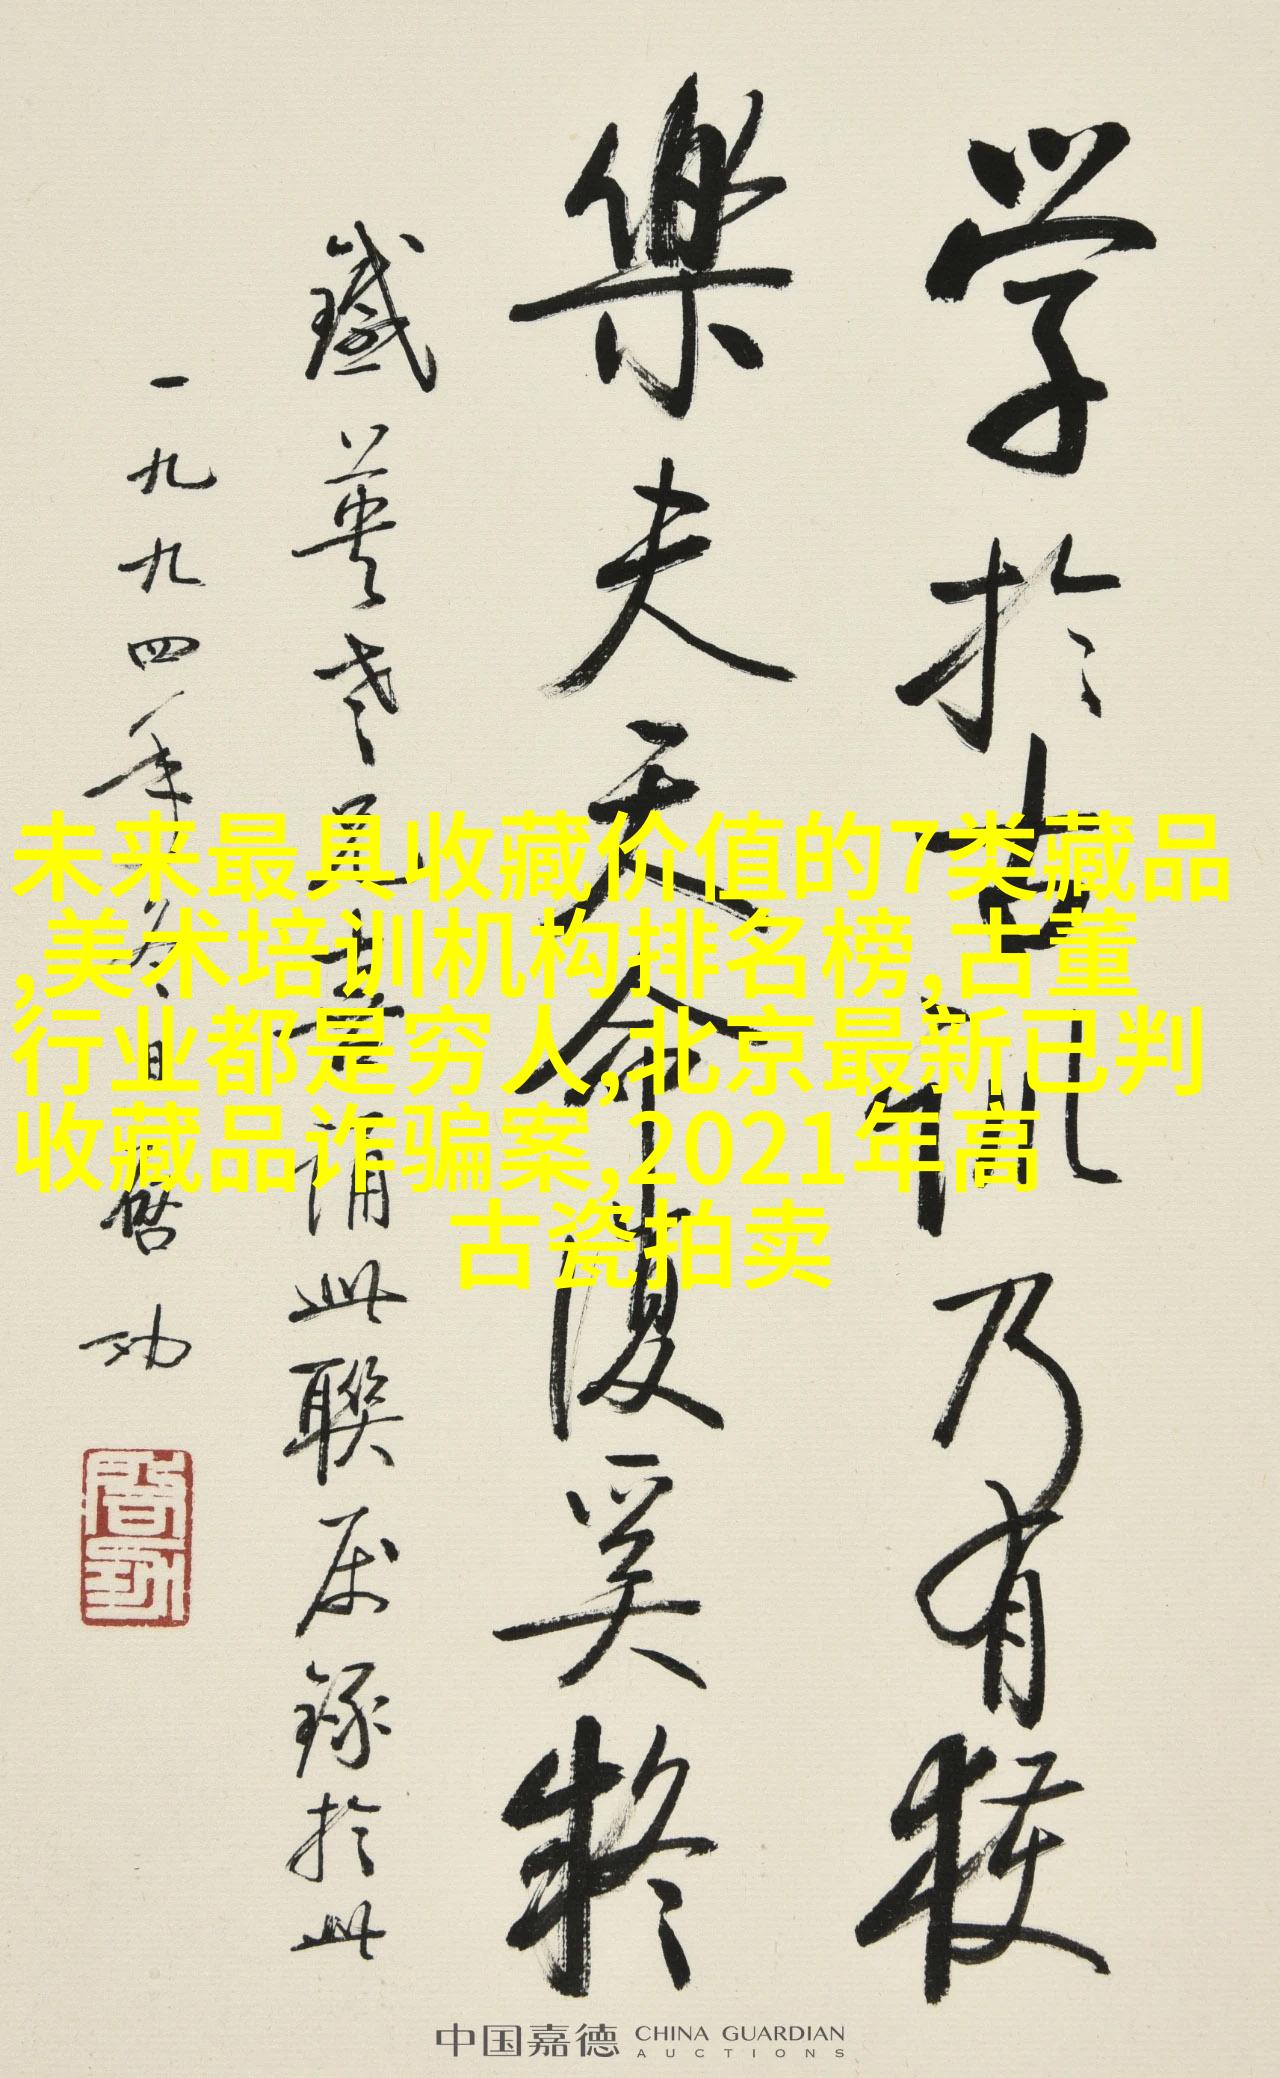 学於古訓乃有获
樂夫天命復奚疑
鐵英老兄喜誦此聯属録於此
一九九四年冬日啓功
啓功
未来最具收藏价值的7类藏品
,美术培训机构排名榜,古董
行业都是穷人,北京最新已判
收藏品诈骗案,2021年高
古瓷拍卖
中国嘉德 CHINA GUARDIAN
AUCTIONS